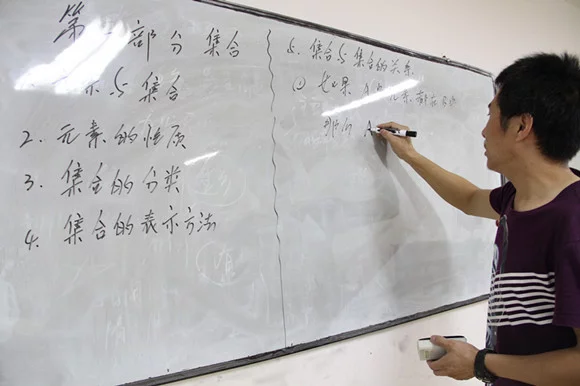 第一部分 集合
素与集合
2. 元素的性质
3. 集合的分类
4. 集合的表示方法
5. 集合与集合的关系
① 如果 A 的元素都在 B 中
A